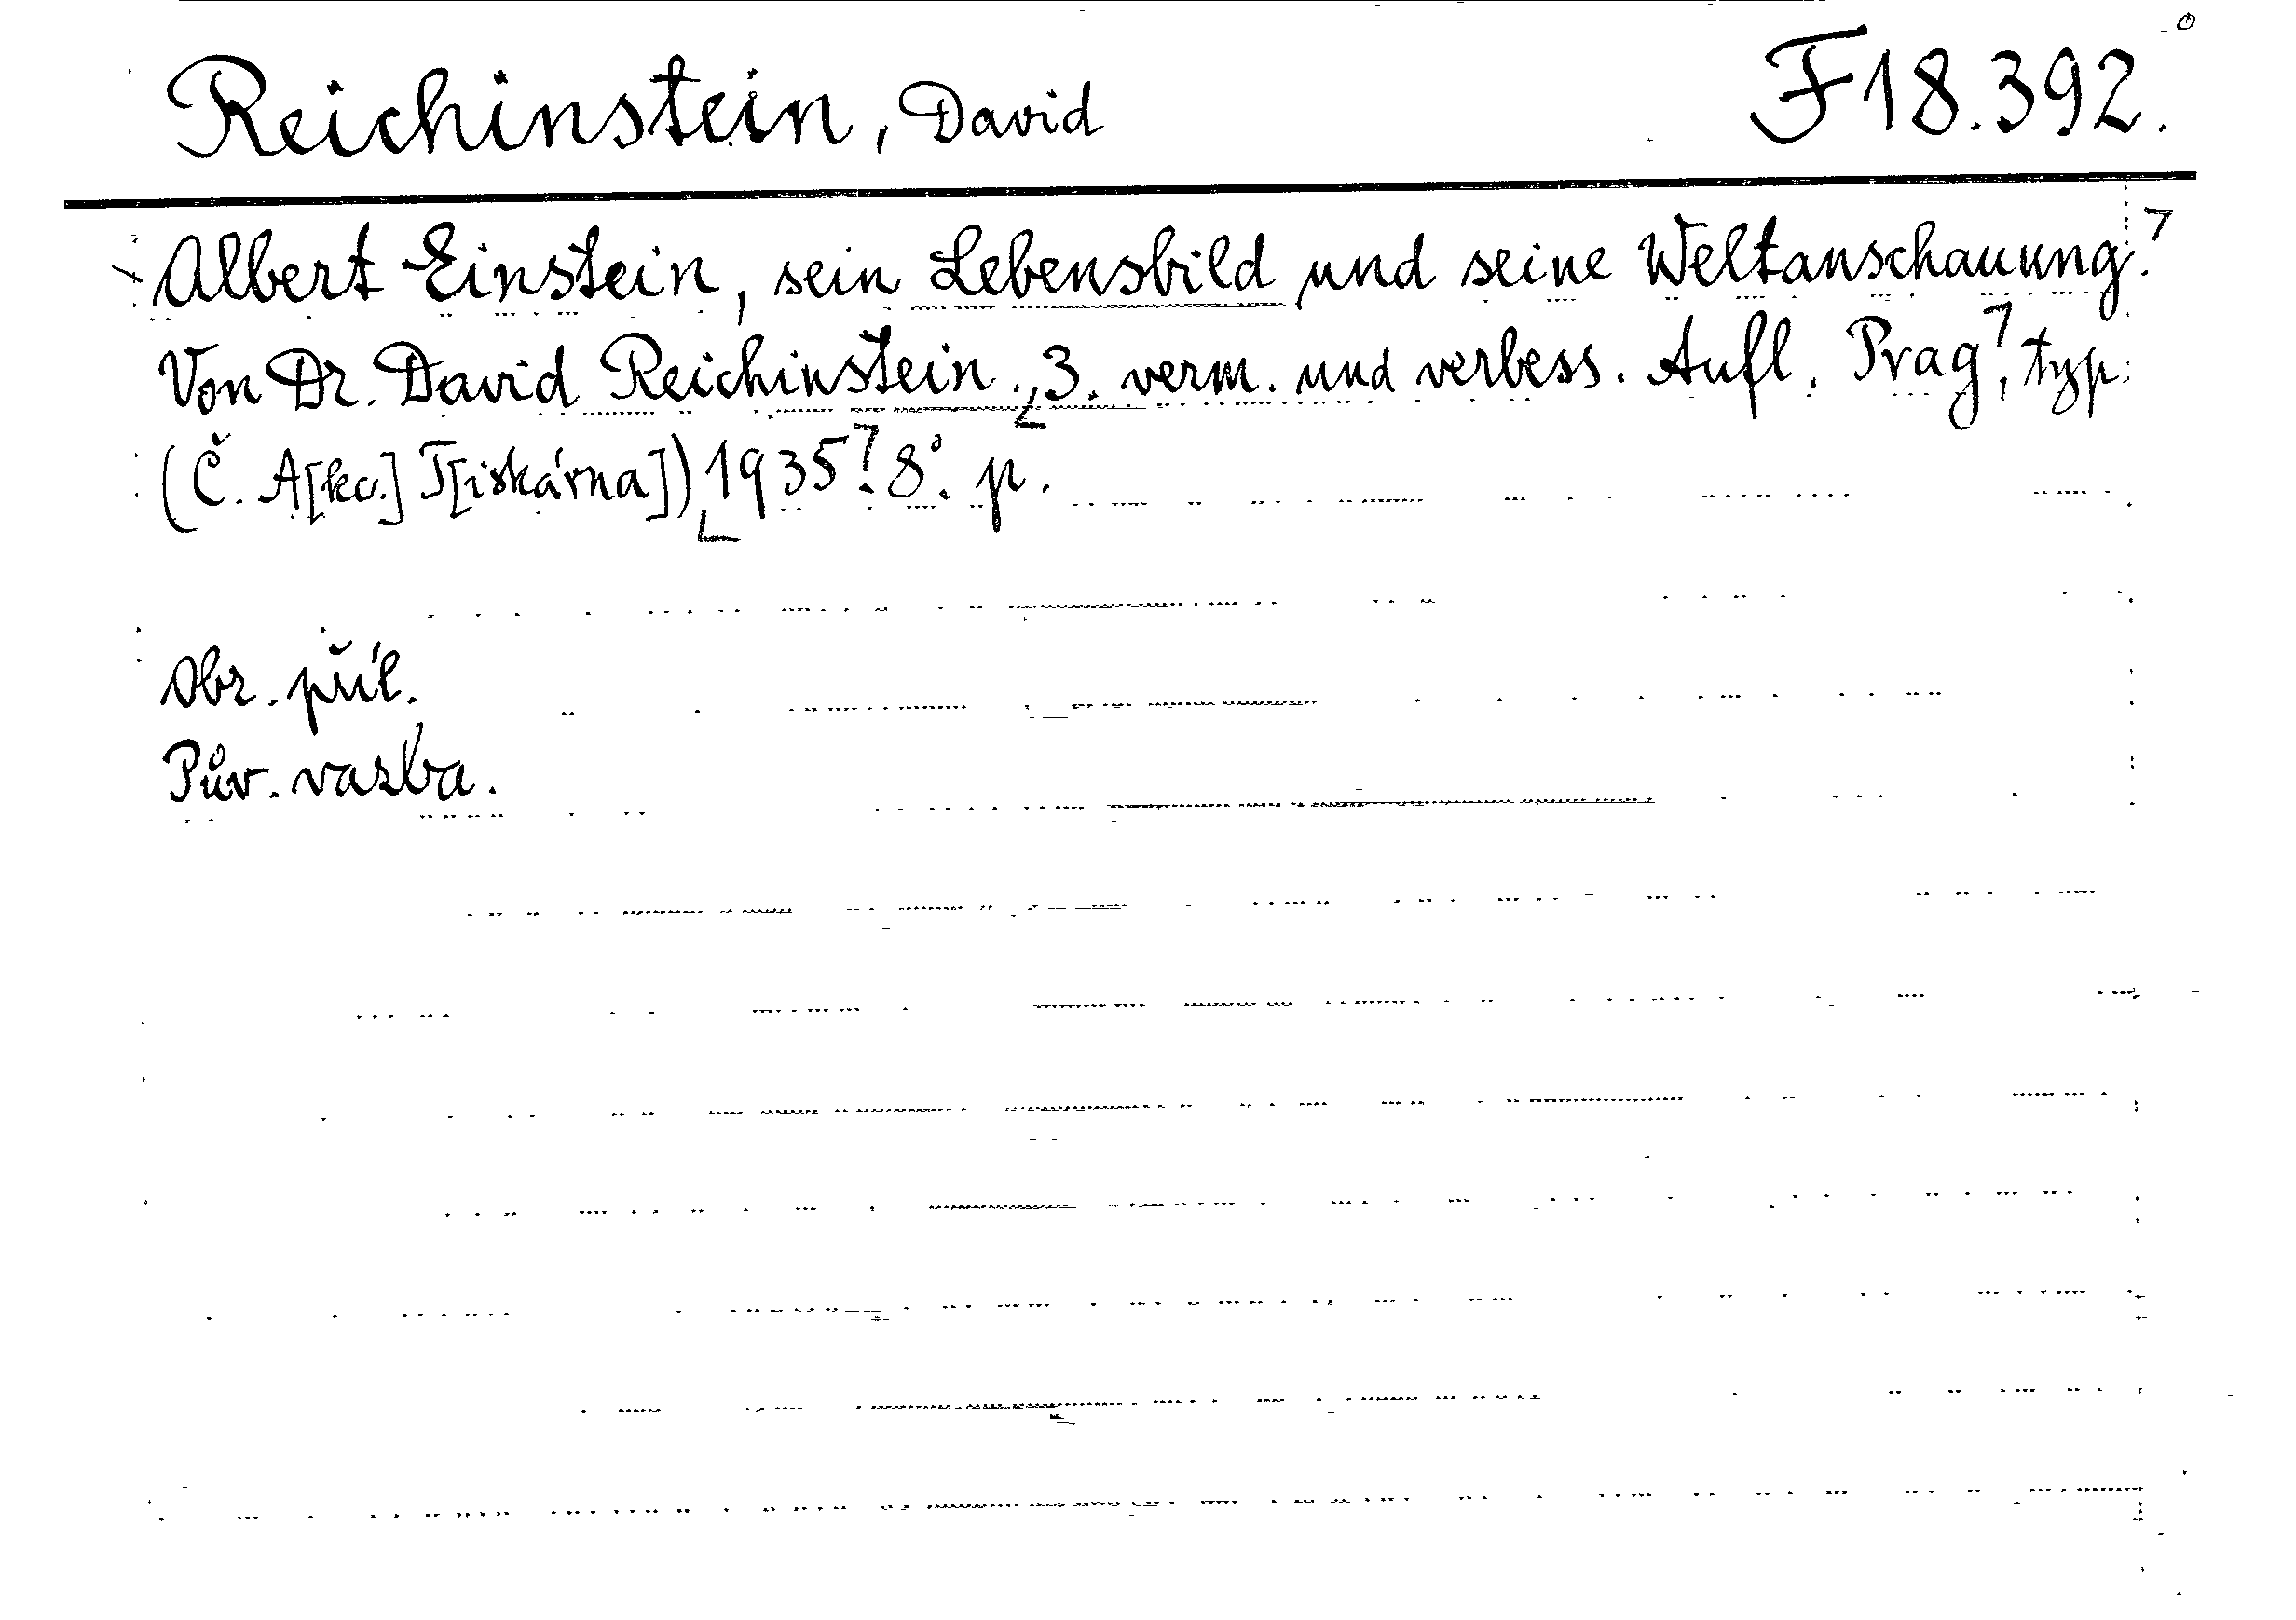 Reichinstein, David F 18.392.
Albert Einstein, sein Lebensbild und seine Weltanschauung.
Von Dr. David Reichinstein. 3. verm. und verbess. Aufl. Prag, typ.
(Č. A[kc.] T[iskárna]) 1935. 8°. p.
Obr. příl.
Pův. vazba.